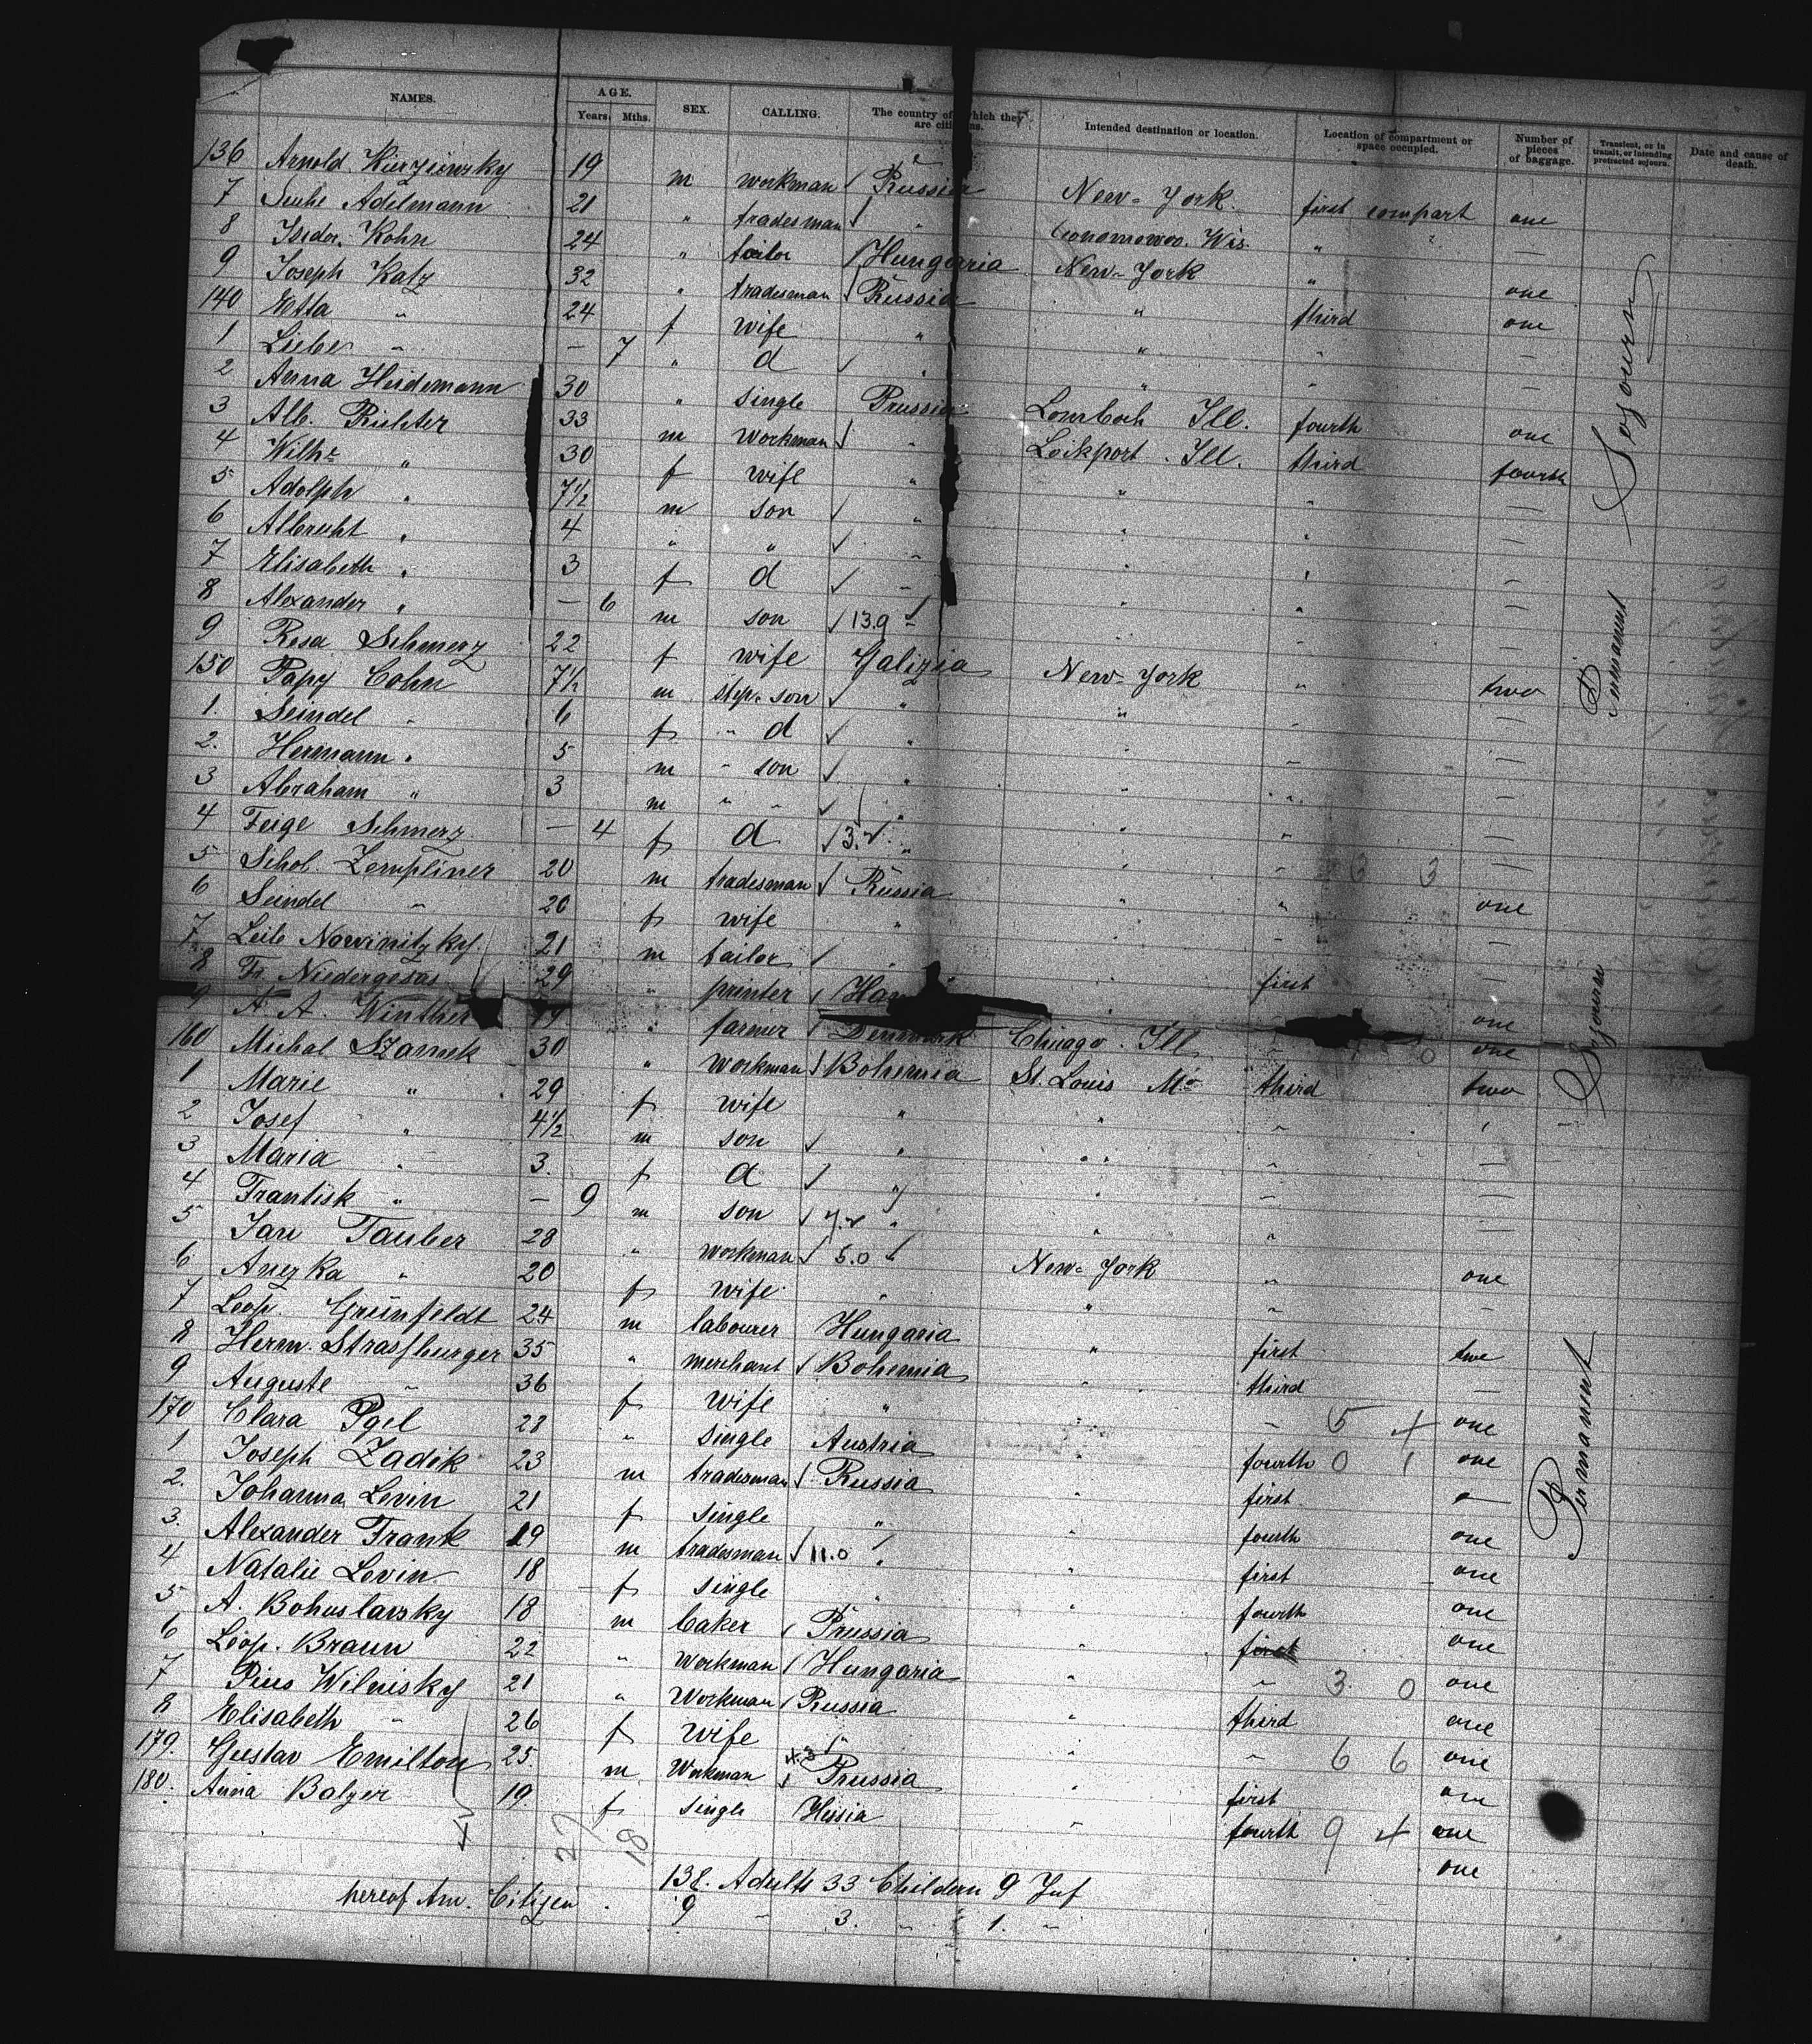 NAMES. AGE. Years. Mths. SEX. CALLING. The country of which they are citizens. Intended destination or location. Location of compartment or space occupied. Number of pieces of baggage. Transient, or in transit, or intending protracted sojourn. Date and cause of death.
136 Arnold 19 m workman Russia New-York. first compart one
7 Adelmann 21 " tradesman " Wis. " —
8 Isidor. Kohn 24 " tailor Hungaria New-York " one
9 Joseph Katz 32 " tradesman Russia " third one
140 Etta " 24 f wife " " " —
1 Liebe " — 7 " d " " " —
2 Anna Heidemann 30 " single Prussia Ill. fourth one
3 Alb. Richter 33 m workman " Lockport. Ill. third fourth
4 Wilhe " 30 f wife " " " —
5 Adolph " 7½ m son " " " —
6 Albrecht " 4 " " " " " —
7 Elisabeth " 3 f d " " " —
8 Alexander " — 6 m son 13.9 " " —
9 Rosa Schmerz 22 f wife Galizia New-York " two
150 Papy Cohn 7½ m step-son " " " —
1. Seindel " 6 f " d " " " —
2. Hermann " 5 m " son " " " —
3 Abraham " 3 m " " " " " —
4 Feige Schmerz — 4 f d 3. " " " —
5 Schol. Zempliner 20 m tradesman Russia " " 3 one
6 Seindel " 20 f wife " " " —
7 Leib Nowinitzky. 21 m tailor " first —
8 Fr. Niedergesas 29 " printer " " one
9 A. A. Winther " farmer Denmark Chicago. Ill. " 0 one
160 Michal Szamek 30 " workman Bohemia St. Louis Mo third two
1 Marie " 29 f wife " " " —
2 Josef " 4½ m son " " " —
3 Maria " 3. f d " " " —
4 Frantisk " — 9 m son " " "
5 Jan Tauber 28 " workman 5.0 New-York " one
6 Anezka " 20 f wife " " " —
7 Leop. Grünfeldt 24 m labourer Hungaria " first two
8 Herm. Strassburger 35 " merchant Bohemia " third —
9 Auguste " 36 f wife " " " 5 4 one
170 Clara Pgel 28 " single Austria " fourth 0 1 one
1 Joseph Zadik 23 m tradesman Russia " first —
2. Johanna Levin 21 f single " " fourth one
3. Alexander Frank 19 m tradesman 11.0 " " first one
4 Natalie Levin 18 f single " " fourth one
5 A. Bohuslavsky 18 m baker Prussia " first one
6 Leop. Braun 22 " workman Hungaria " " 3. 0 one
7 Pius Wilnisky 21 " Workman Russia " third one
8 Elisabeth " 26 f wife " " " 6 6 one
179. Gustav Emilton 25. m Workman Prussia " first one
180. Anna Balzer 19. f single Hessia " fourth 9 4 one
one
Sojourn
Permanent
Sojourn
Permanent
27 18
138. Adults 33 Childern 9 Inf
hereof Am. Citizen. 9 " 3. " 1. "